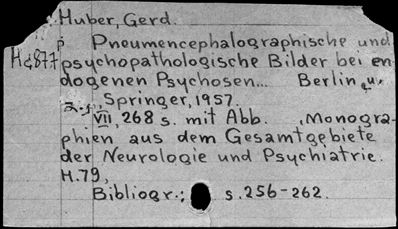 Huber, Gerd.
p Pneumencephalographische und
H d877 psychopathologische Bilder bei en-
dogenen Psychosen... Berlin u.
Springer, 1957.
VII, 268 s. mit Abb. (Monogra-
phien aus dem Gesamtgebiete
der Neurologie und Psychiatrie.
H.79,
Bibliogr.: s.256-262.